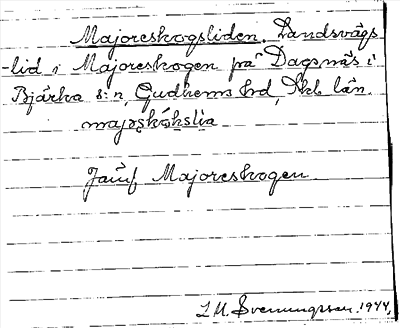 Majoreskogsliden. Landsvägs
-lid i Majoreskogen på Dagsnäs i
Bjärka s:n, Gudhems hd, Skb. län.
majoskókslia
Jämf Majoreskogen
L. M. Svenungsson. 1944.